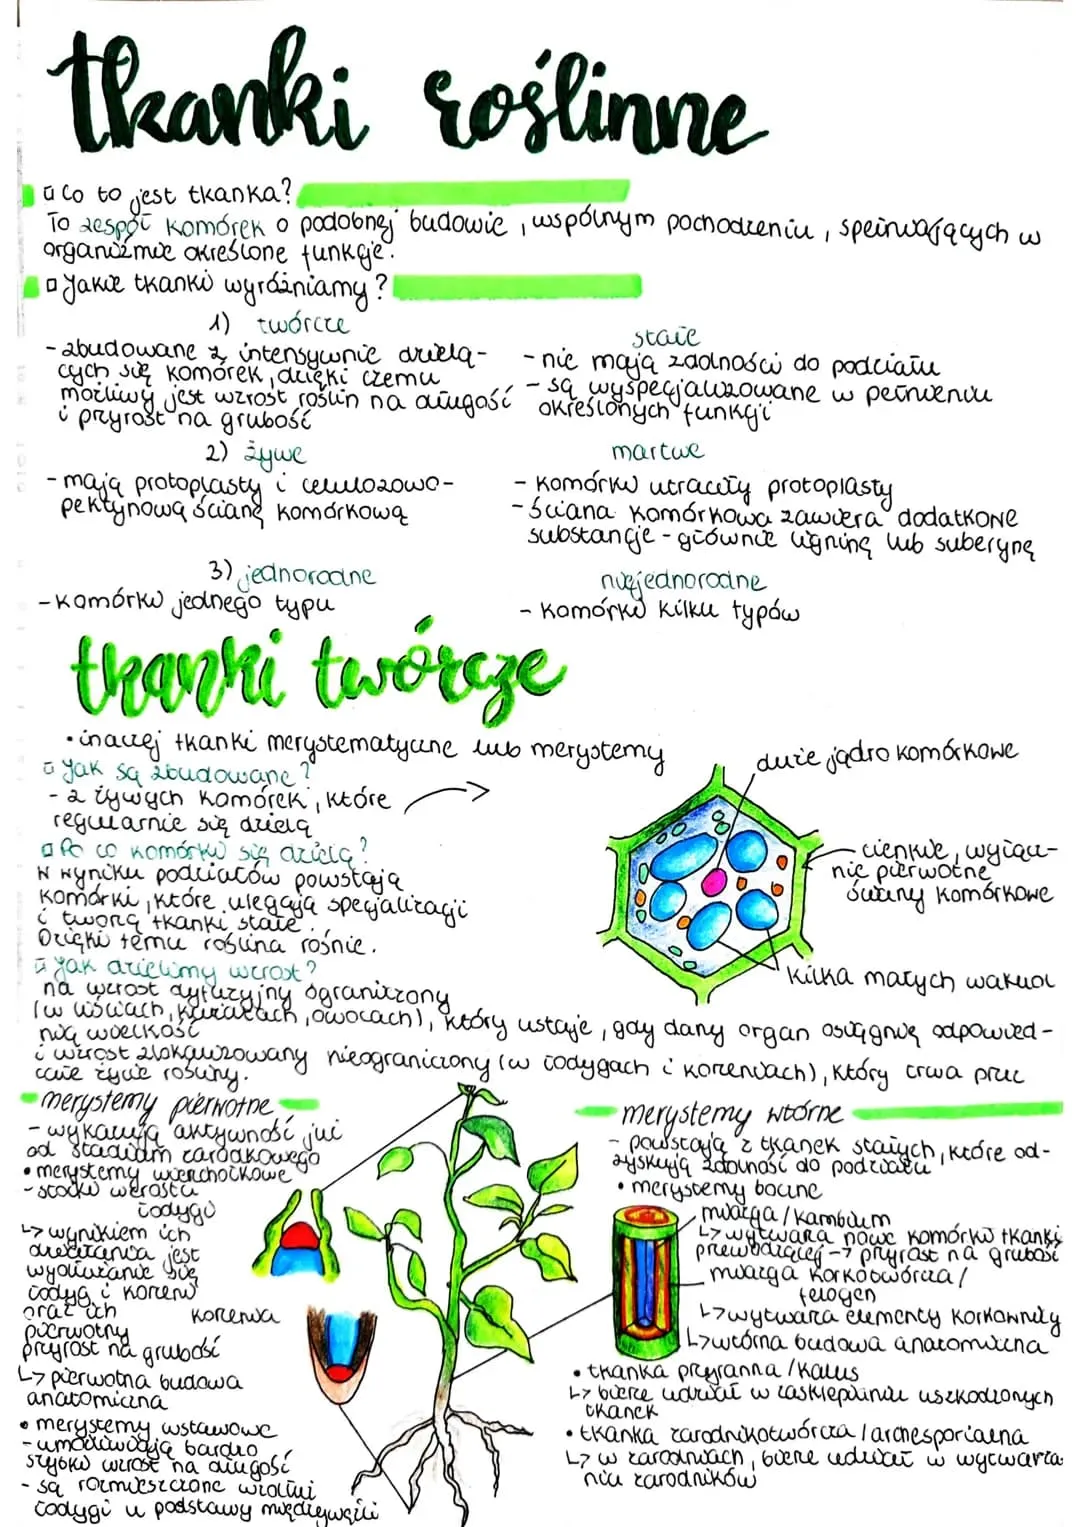 tkanki roślinne
▫ Co to jest tkanka?
To zespół komórek o podobnej budowie, wspólnym pochodzeniu, spełniających w
organizmie określone funkcje.
▫ Jakie tkanki wyróżniamy?
1) twórcze
- zbudowane z intensywnie dzielą-
cych się komórek, dzięki czemu
możliwy jest wzrost roślin na długość
i przyrost na grubość
stałe
- nie mają zdolności do podziału
- są wyspecjalizowane w pełnieniu
określonych funkcji
2) żywe
- mają protoplasty i celulozowo-
pektynową ścianę komórkową
martwe
- komórki utraciły protoplasty
- ściana komórkowa zawiera dodatkone
substancje - głównie ligninę lub suberynę
3) jednorodne
- komórki jednego typu
niejednorodne
- komórki kilku typów
tkanki twórcze
• inaczej tkanki merystematyczne lub merystemy
▫ Jak są zbudowane?
- z żywych komórek, które
regularnie się dzielą
▫ Po co komórki się dzielą?
W wyniku podziałów powstają
komórki, które ulegają specjalizacji
i tworzą tkanki stałe.
Dzięki temu roślina rośnie.
▫ Jak dzielimy wzrost?
na wzrost dyfuzyjny ograniczony
(w liściach, kwiatach, owocach), który ustaje, gdy dany organ osiągnie odpowied-
nią wielkość
i wzrost zlokalizowany nieograniczony (w łodygach i korzeniach), który trwa przez
całe życie rośliny.
duże jądro komórkowe
cienkie, wyłącz-
nie pierwotne
ściany komórkowe
kilka małych wakuol
merystemy pierwotne
- wykazują aktywność już
od stadium zarodkowego
• merystemy wierzchołkowe
- stożki wzrostu
łodygi
↳ wynikiem ich
działania jest
wydłużanie się
łodyg i korzeni
oraz ich
pierwotny
przyrost na grubość
korzenia
↳ pierwotna budowa
anatomiczna
• merystemy wstawowe
- umożliwiają bardzo
szybki wzrost na długość
- są rozmieszczone wzdłuż
łodygi u podstawy międzywęźli
merystemy wtórne
- powstają z tkanek stałych, które od-
zyskują zdolność do podziału
• merystemy boczne
miazga / kambium
↳ wytwarza nowe komórki tkanki
przewodzącej → przyrost na grubość
miazga korkotwórcza /
felogen
↳ wytwarza elementy korkowicy
↳ wtórna budowa anatomiczna
• tkanka przyranna / kalus
↳ bierze udział w zasklepianiu uszkodzonych
tkanek
• tkanka zarodnikotwórcza / archesporialna
↳ w zarodniach, bierze udział w wytwarza-
niu zarodników